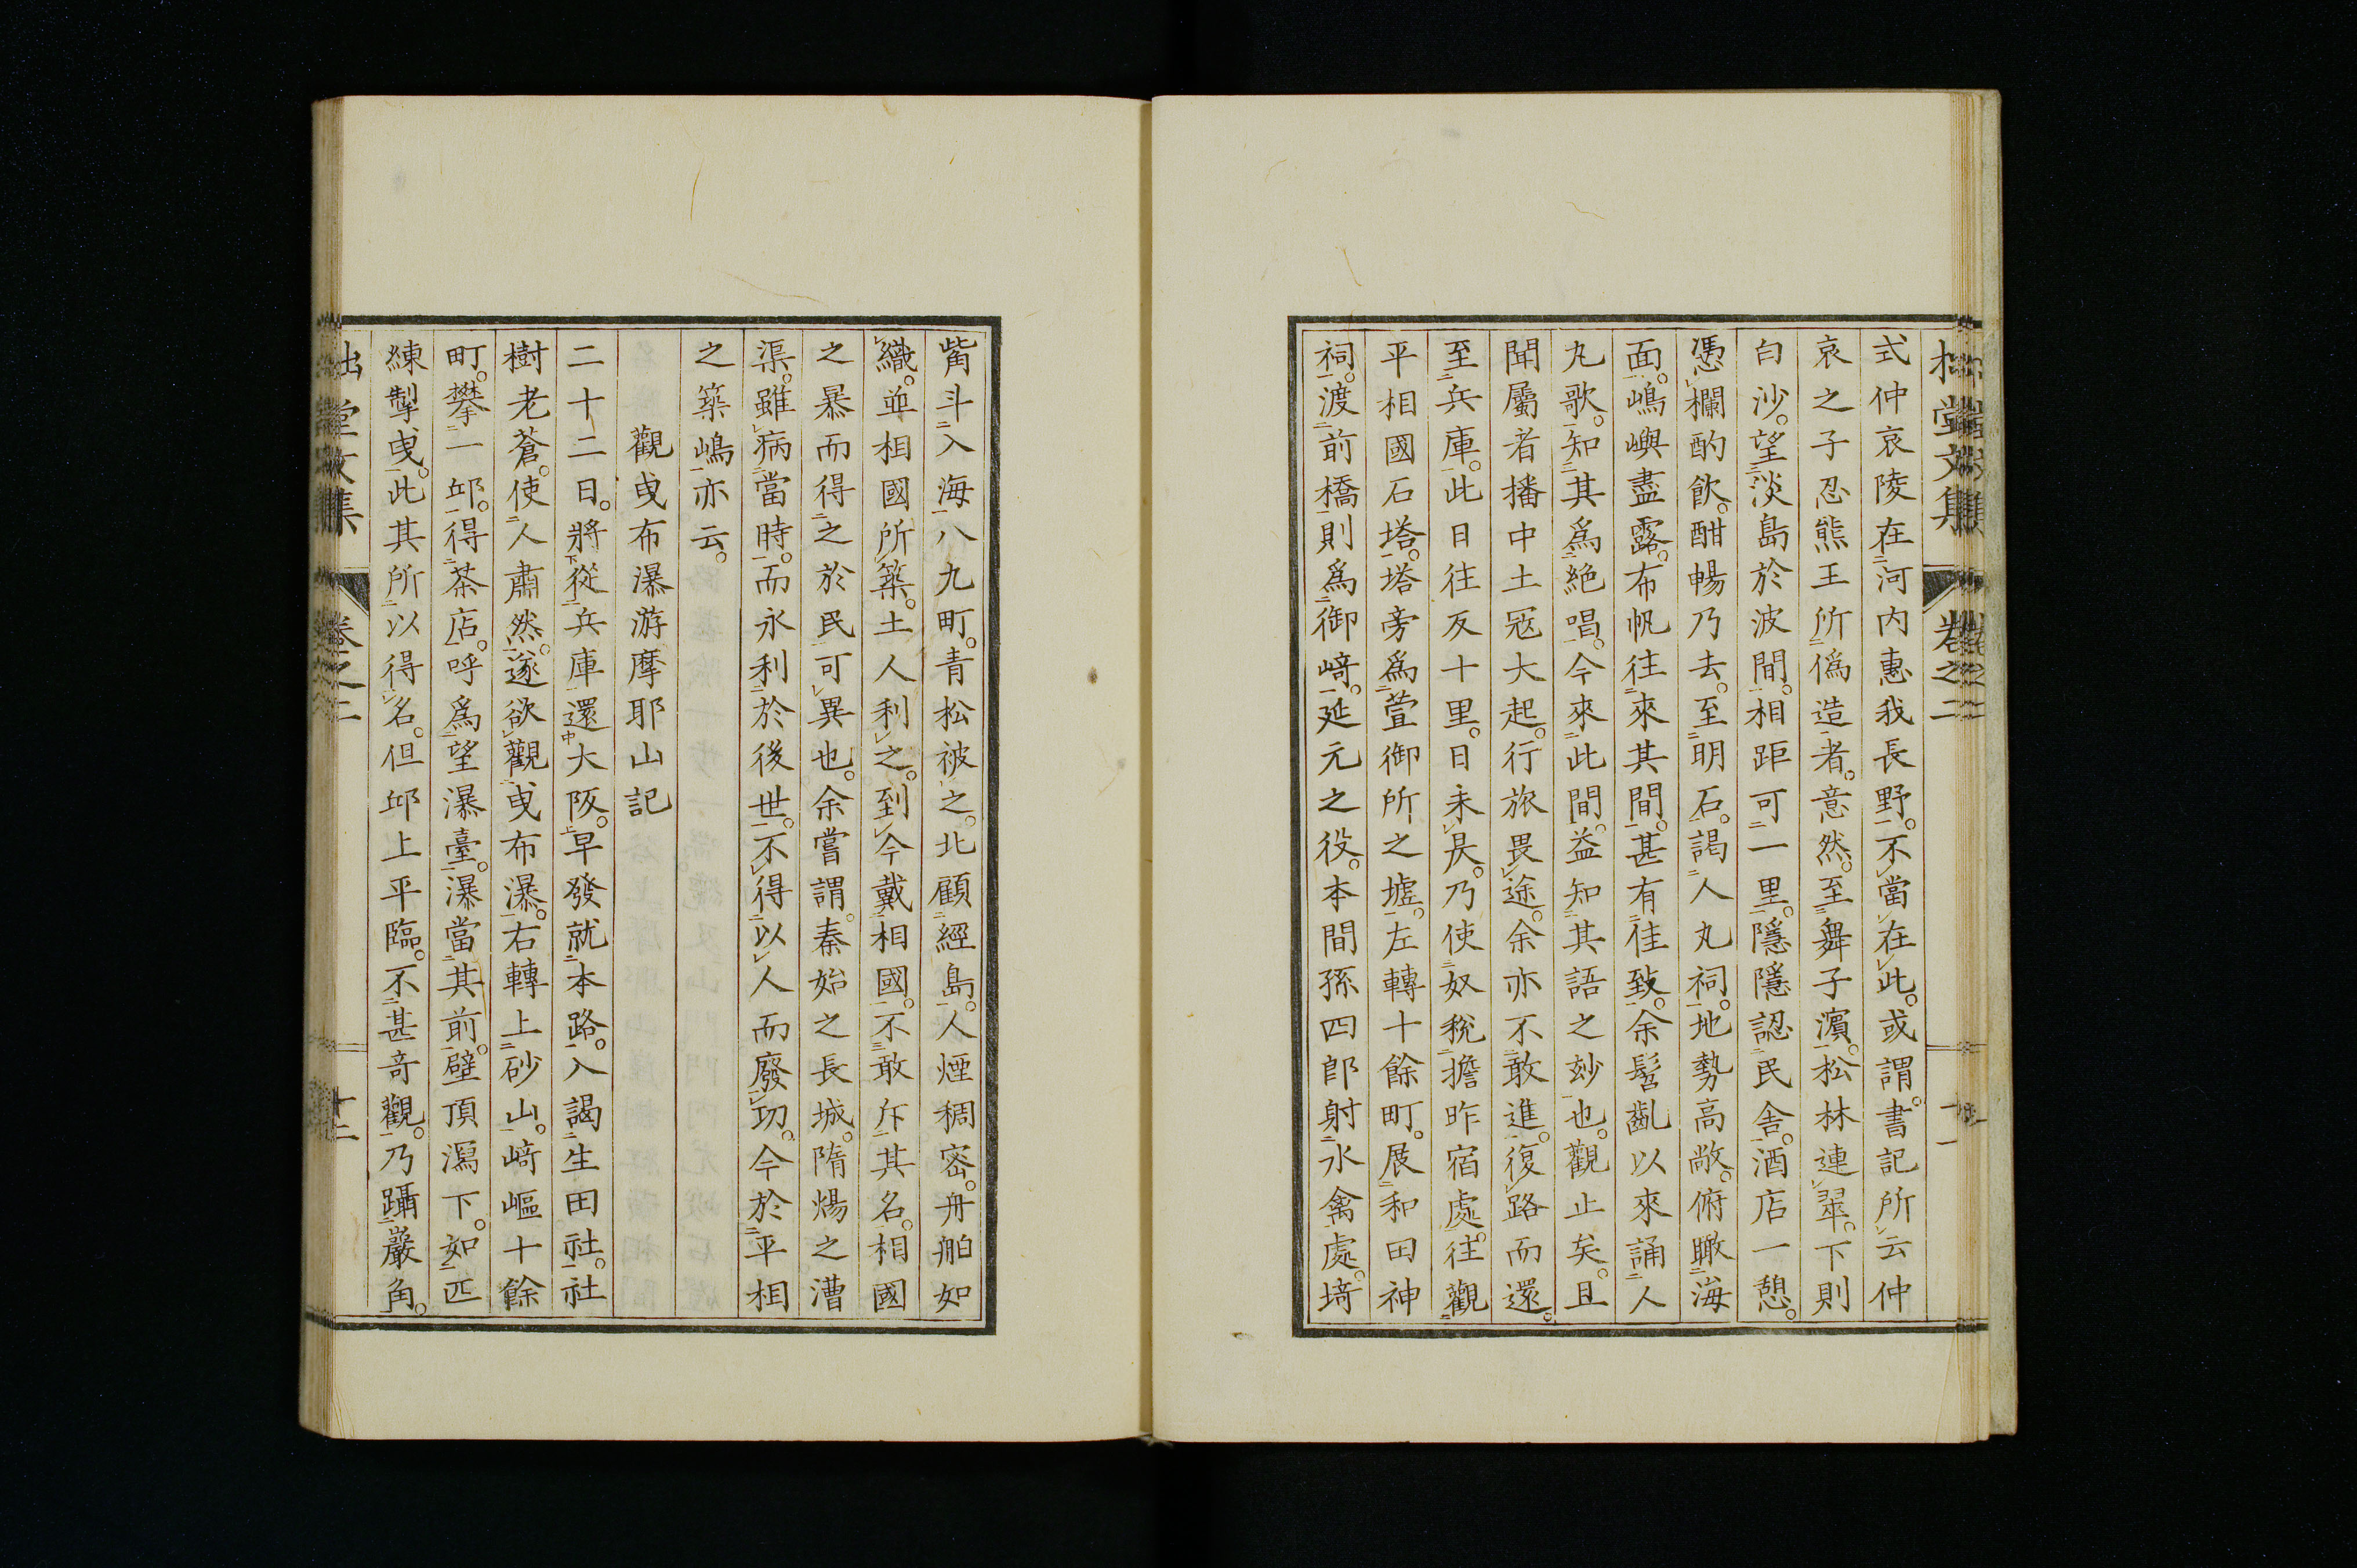 式仲哀陵在河内惠我長野。不當在此。或謂。書記所云仲
哀之子忍熊王所僞造者。意然。至舞子濵。松林連翠。下則
白沙。望淡島於波間。相距可一里。隱隱認民舎。酒店一憩。
憑欄酌飮。酣暢乃去。至明石。謁人丸祠。地勢高敞。俯瞰海
面。嶋嶼盡露。布帆往來其間。甚有佳致。余髫齔以來誦人
丸歌。知其爲絶唱。今來此間。益知其語之玅也。觀止矣。且
聞屬者播中土冦大起。行旅畏途。余亦不敢進。復路而還。
至兵庫。此日往反十里。日未昃。乃使奴税擔昨宿處。往觀
平相國石塔。塔旁爲萱御所之墟。左轉十餘町。展和田神
祠。渡前橋。則爲御﨑。延元之役。本間孫四郎射水禽處。埼
觜斗入海八九町。青松被之。北顧經島。人煙稠密。舟舶如
織。並相國所築。土人利之。到今戴相國。不敢斥其名。相國
之暴而得之於民。可異也。余嘗謂。秦始之長城。隋煬之漕
渠。雖病當時。而永利於後世。不得以人而廢功。今於平相
之築嶋亦云。
觀曳布瀑游摩耶山記
二十二日。將從兵庫還大阪。早發就本路。入謁生田社。社
樹老蒼。使人肅然。遂欲觀曳布瀑。右轉上砂山。﨑嶇十餘
町。攀一邱。得茶店。呼爲望瀑臺。瀑當其前。壁頂瀉下。如匹
練掣曳。此其所以得名。但邱上平臨。不甚竒觀。乃躡巖角。
堂文集 卷之二 十二